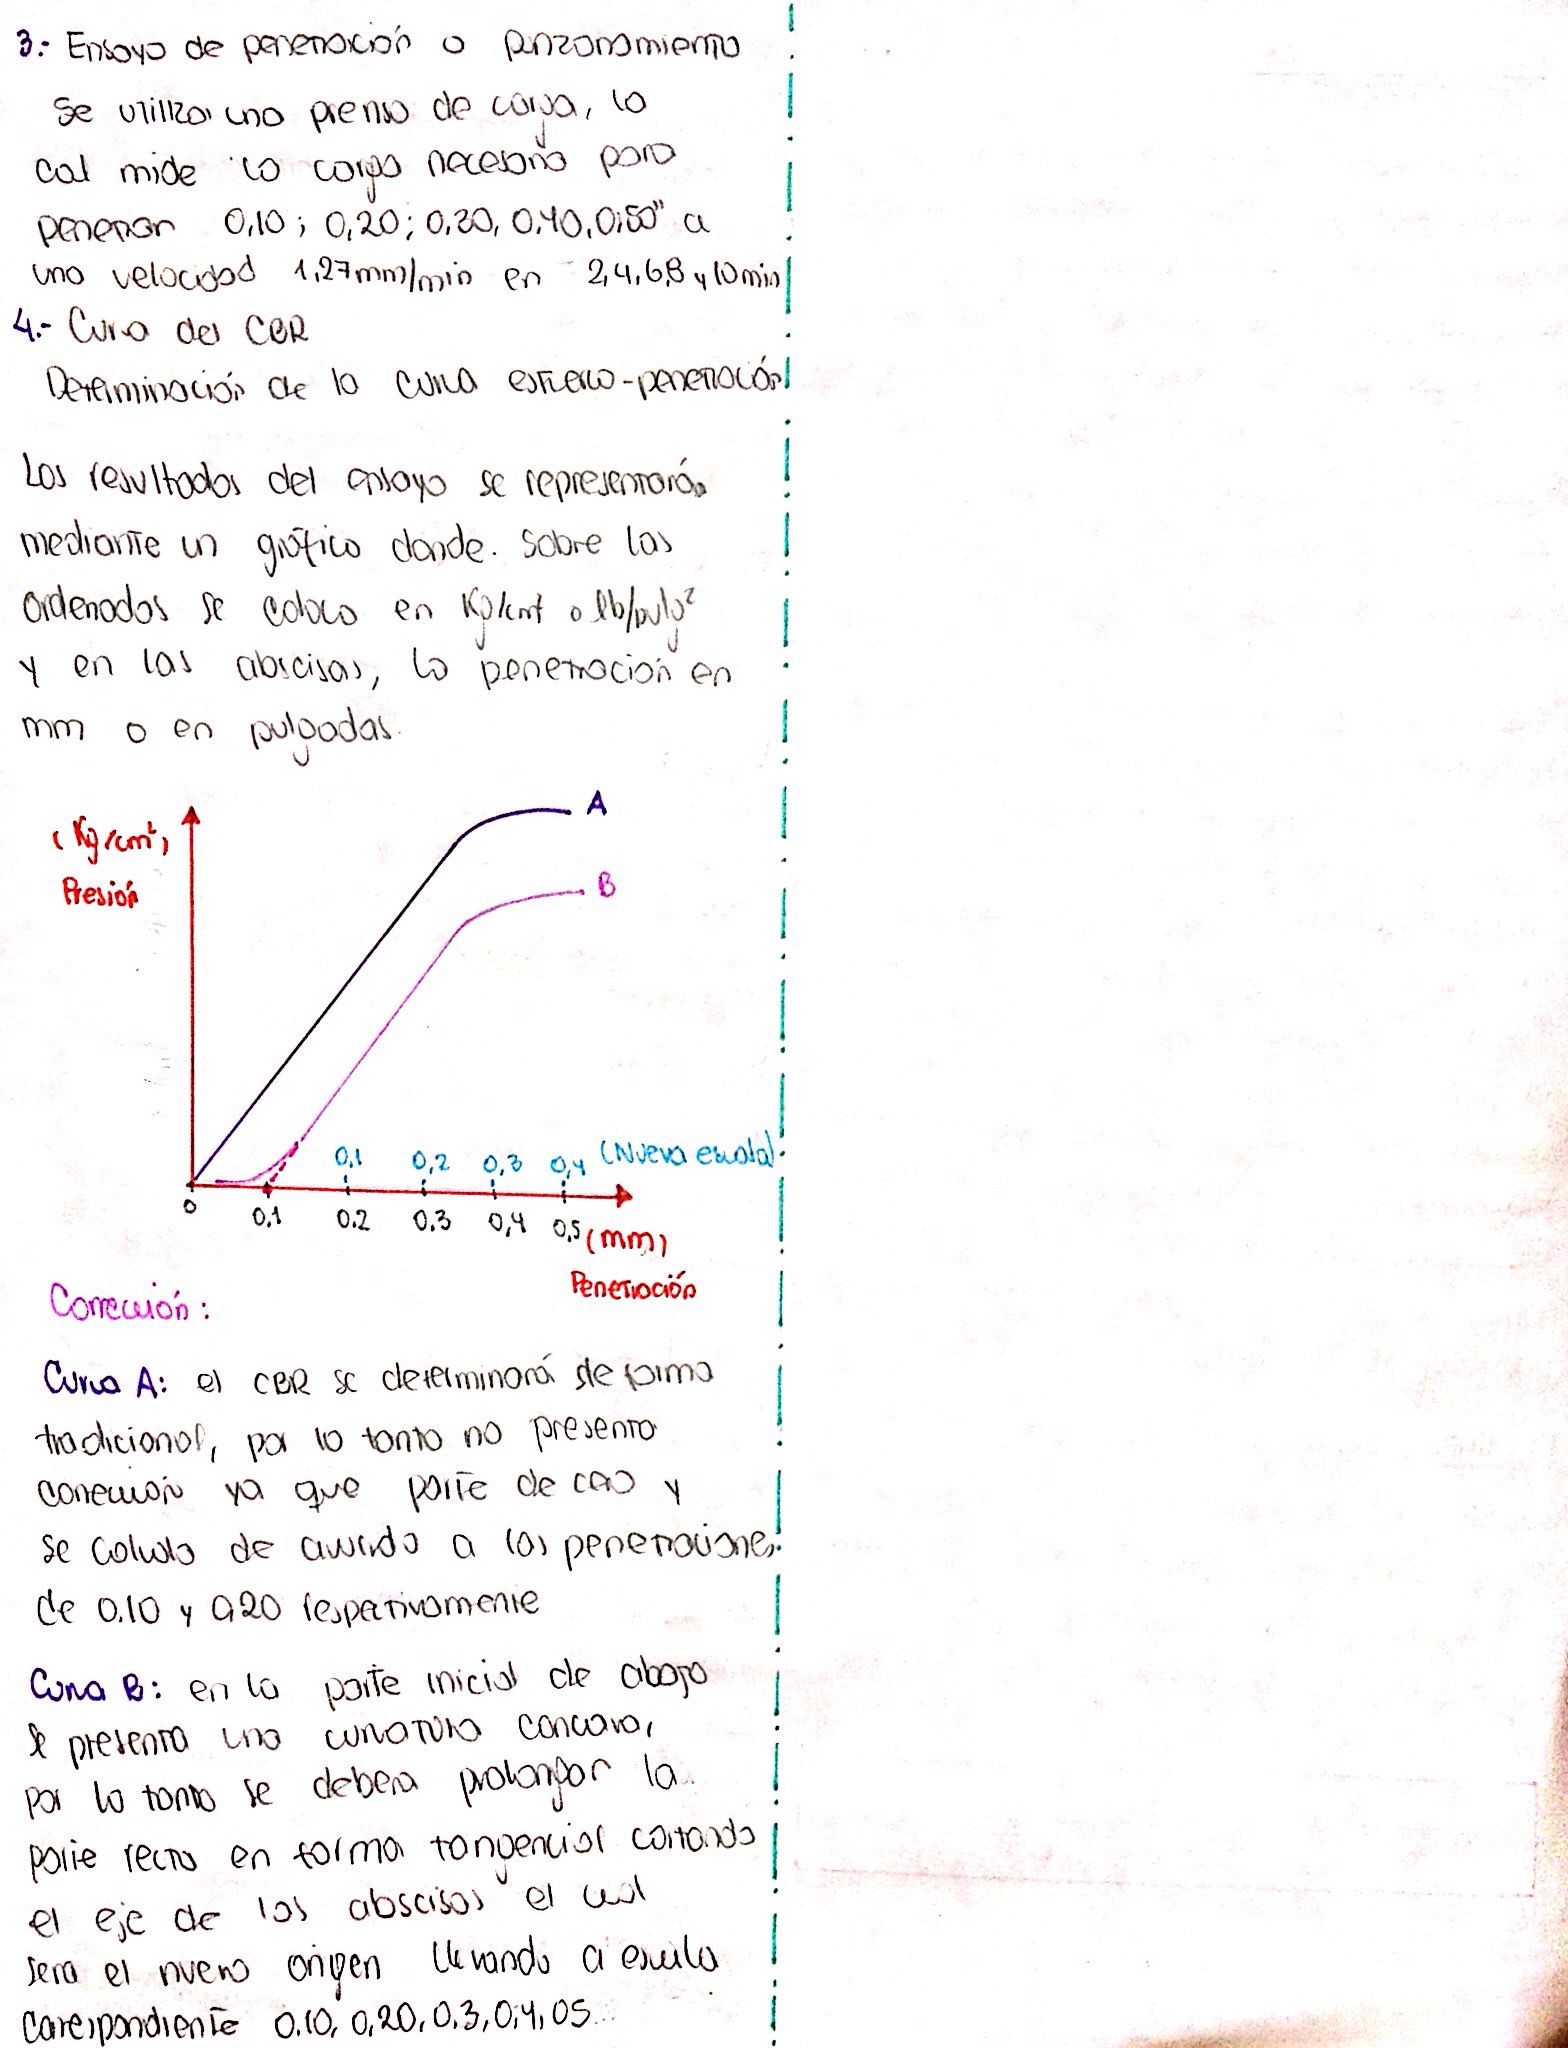 3.- Ensayo de penetración o punzonamiento
Se utiliza una prensa de carga, la
cal mide la carga necesaria para
penetrar 0,10; 0,20; 0,30, 0,40, 0,50" a
una velocidad 1,27mm/min en 2,4,6,8 y 10 min
4.- Curva del CBR
Determinación de la curva esfuerzo-penetración
Los resultados del ensayo se representará
mediante un gráfico donde. Sobre las
ordenadas se coloca en Kg/cm² o lb/pulg²
y en las abscisas, la penetración en
mm o en pulgadas.
A
(Kg/cm²)
B
Presión
0,1 0,2 0,3 0,4 (Nueva escala)
0 0,1 0.2 0.3 0,4 0,5 (mm)
Penetración
Corrección:
Curva A: el CBR se determinará de forma
tradicional, por lo tanto no presenta
corrección ya que parte de cero y
se calcula de acuerdo a las penetraciones
de 0.10 y 0.20 respectivamente
Curva B: en la parte inicial de abajo
se presenta una curvatura concava,
por lo tanto se debera prolongar la
parte recta en forma tangencial cortando
el eje de las abscisas el cual
sera el nuevo origen llevando a escala
correspondiente 0.10, 0,20, 0.3, 0,4, 05